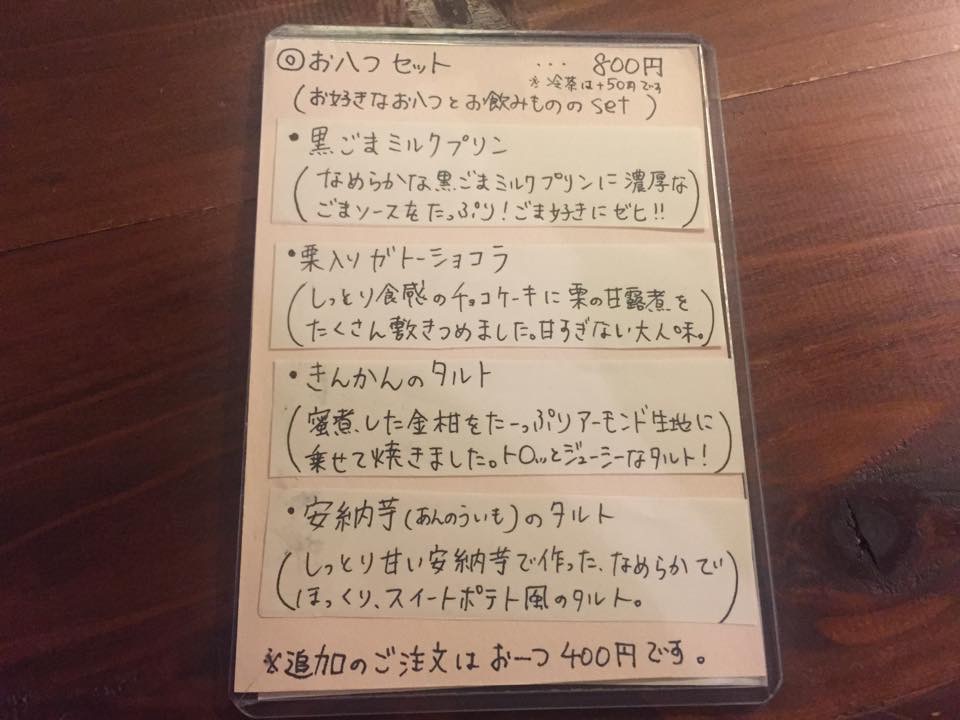 ◎お八つセット ... 800円
※冷茶は+50円です
(お好きなお八つとお飲みもののset)
・黒ごまミルクプリン
(なめらかな黒ごまミルクプリンに濃厚な
ごまソースをたっぷり!ごま好きにゼヒ!!)
・栗入りガトーショコラ
(しっとり食感のチョコケーキに栗の甘露煮を
たくさん敷きつめました。甘すぎない大人味。)
・きんかんのタルト
(蜜煮した金柑をたーっぷりアーモンド生地に
乗せて焼きました。トロッとジューシーなタルト!)
・安納芋(あんのういも)のタルト
(しっとり甘い安納芋で作った、なめらかで
ほっくり、スイートポテト風のタルト。)
※追加のご注文はお一つ400円です。